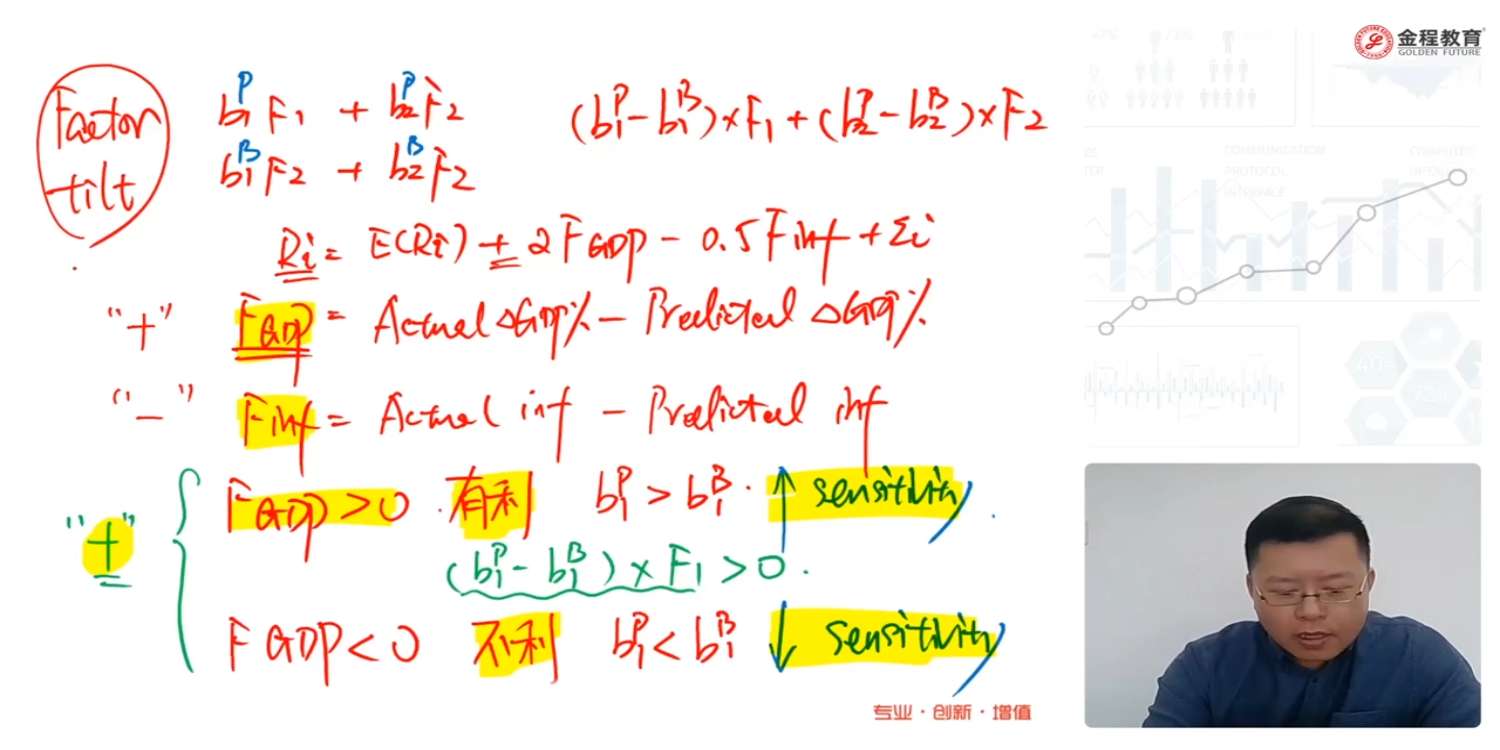 金程教育
GOLDEN FUTURE
Factor tilt
b₁ᴾF₁ + b₂ᴾF₂ (b₁ᴾ-b₁ᴮ)×F₁+(b₂ᴾ-b₂ᴮ)×F₂
b₁ᴮF₂ + b₂ᴮF₂
Ri = E(Ri) + 2FGDP - 0.5Finf + Σi
"+" FGDP = Actual ΔGDP% - Predicted ΔGDP%
"-" Finf = Actual inf - Predicted inf
FGDP>0 有利 b₁ᴾ > b₁ᴮ ↑ sensitivity
"+" (b₁ᴾ-b₁ᴮ)×F₁>0
FGDP<0 不利 b₁ᴾ<b₁ᴮ ↓ sensitivity
专业·创新·增值
COMMUNICATION
PROTOCOL